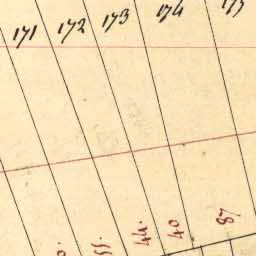 171 172 173 174 177
44. 40 87